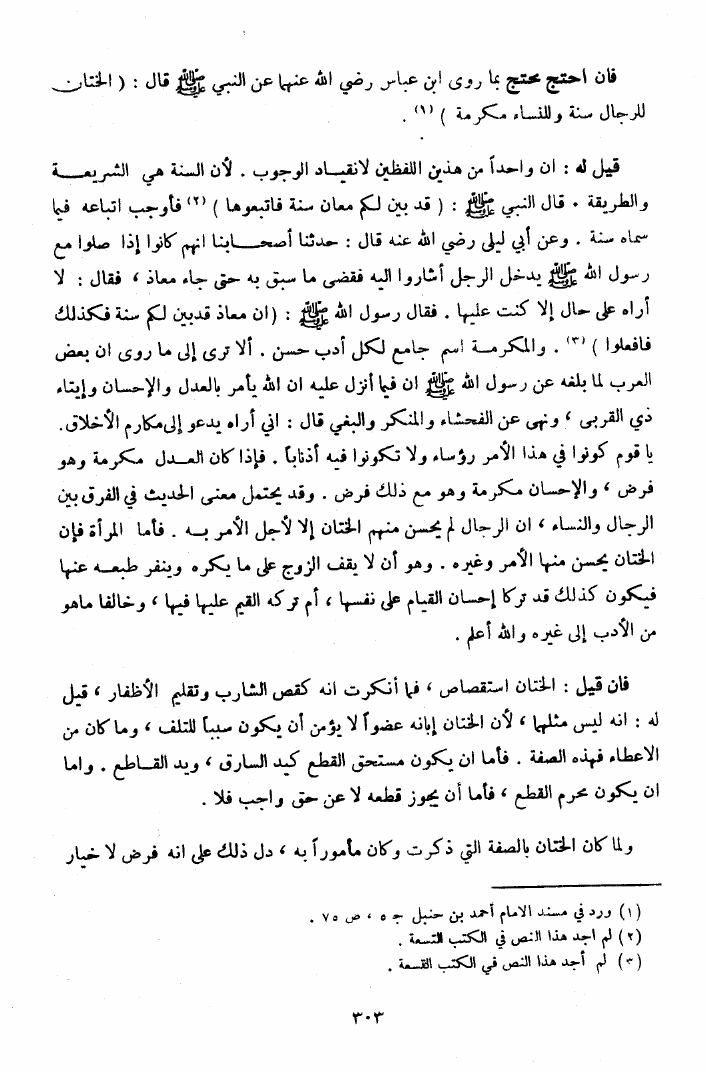 فان احتج محتج بما روى ابن عباس رضي الله عنهما عن النبي ﷺ قال : ( الختان
للرجال سنة وللنساء مكرمة ) (١) .
قيل له : ان واحداً من هذين اللفظين لانقيـاد الوجوب . لأن السنة هي الشريعـــة
والطريقة . قال النبي ﷺ : ( قد بين لكم معان سنة فاتبعوها ) (٢) فأوجب اتباعه فيما
سماه سنة . وعن أبي ليلى رضي الله عنه قال : حدثنا أصحـــابنا انهم كانوا إذا صلوا مع
رسول الله ﷺ يدخل الرجل أشاروا اليه فقضى ما سبق به حتى جاء معاذ ، فقال : لا
أراه على حال إلا كنت عليها . فقال رسول الله ﷺ : ( ان معاذ قدبين لكم سنة فكذلك
فافعلوا ) (٣) . والمكرمــة اسم جامع لكل أدب حسن . ألا ترى إلى ما روى ان بعض
العرب لما بلغه عن رسول الله ﷺ ان فيما أنزل عليه ان الله يأمر بالعدل والإحسان وإيتاء
ذي القربى ، ونهى عن الفحشاء والمنكر والبغي قال : اني أراه يدعو إلى مكارم الأخلاق.
يا قوم كونوا في هذا الأمر رؤساء ولا تكونوا فيه أذناباً . فإذا كان العــدل مكرمة وهو
فرض ، والإحسان مكرمة وهو مع ذلك فرض . وقد يحتمل معنى الحديث في الفرق بين
الرجال والنساء ، ان الرجال لم يحسن منهم الختان إلا لأجل الأمر بــه . فأما المرأة فإن
الختان يحسن منها الأمر وغيره . وهو أن لا يقف الزوج على ما يكره وينفر طبعــه عنها
فيكون كذلك قد تركا إحسان القيام على نفسها ، أم تركه القيم عليها فيها ، وخالفا ماهو
من الأدب إلى غيره والله أعلم .
فان قيل : الختان استقصاص ، فما أنكرت انه كقص الشارب وتقليم الأظفار ، قيل
له : انه ليس مثلهما ، لأن الختان إبانه عضواً لا يؤمن أن يكون سبباً للتلف ، وما كان من
الاعطاء فهذه الصفة . فأما ان يكون مستحق القطع كيد السارق ، ويد القــاطع . واما
ان يكون محرم القطع ، فأما أن يجوز قطعه لا عن حق واجب فلا .
ولما كان الختان بالصفة التي ذكرت وكان مأموراً به ، دل ذلك على انه فرض لا خيار
(١) ورد في مسند الامام أحمد بن حنبل جـ ٥ ، ص ٧٥ .
(٢) لم اجد هذا النص في الكتب التسعة .
(٣) لم أجد هذا النص في الكتب التسعة .
٣٠٣